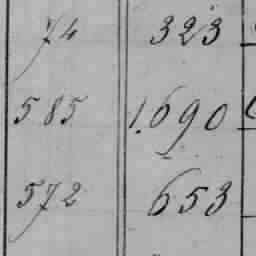 74 323
585 1.690
572 653